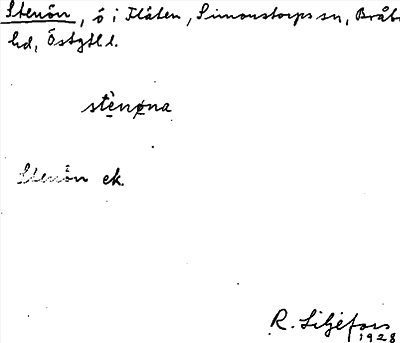 Stenön, ö i Flåten, Simonstorps sn, Bråbo
hd, Östgtl l.
stènøna
Stenön ek.
R. Liljefors
1928